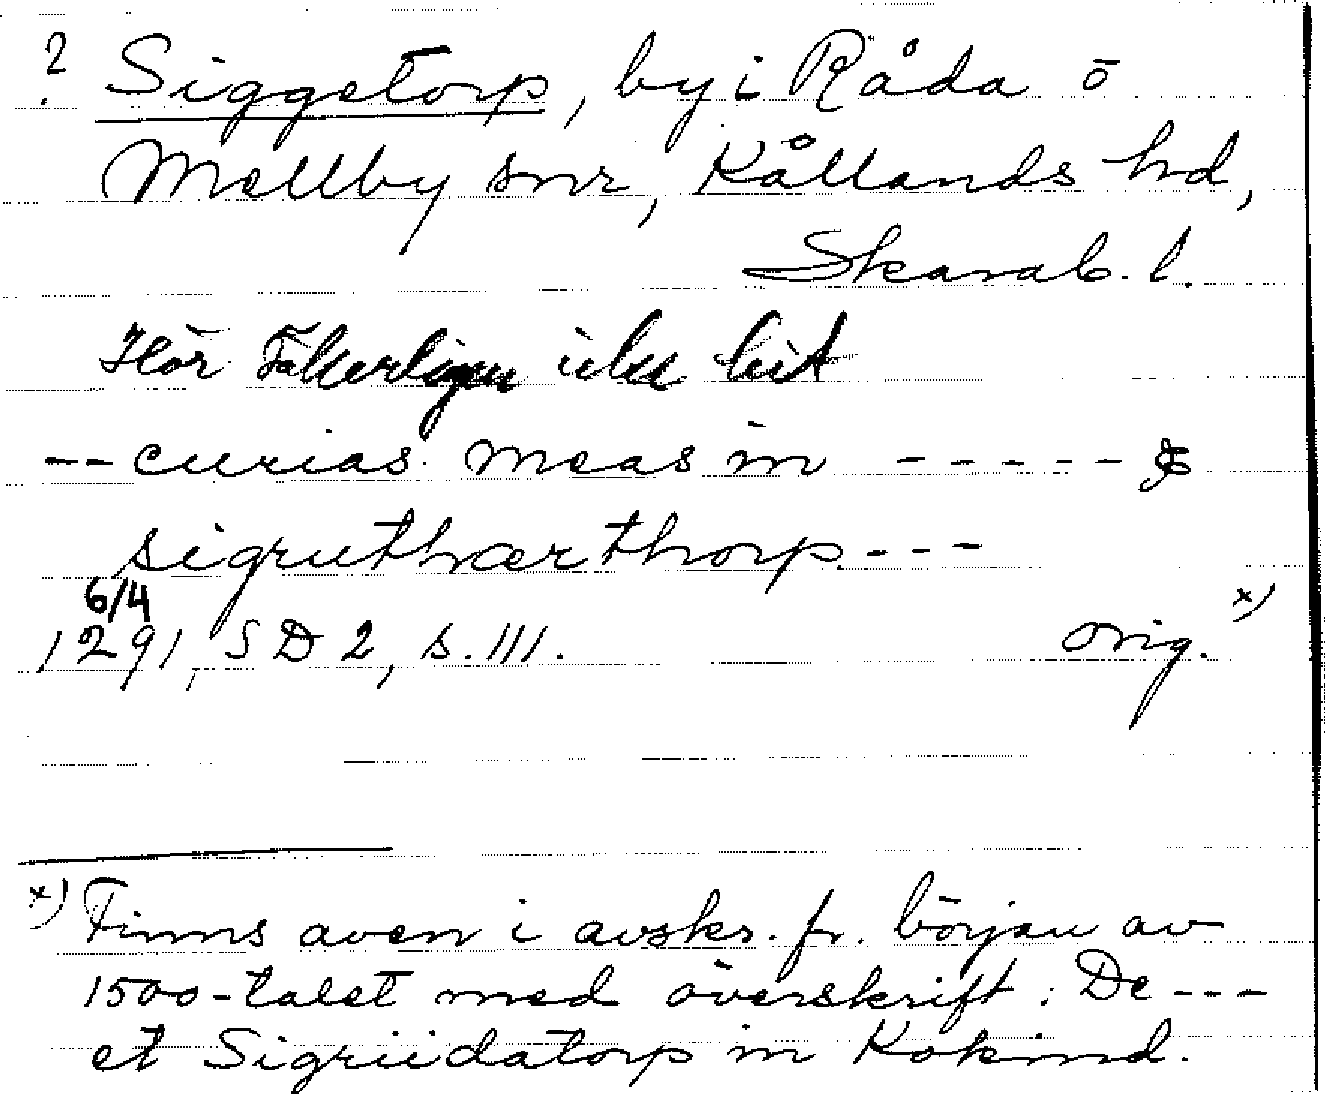 ? Siggetorp, by i Råda o
Mellby snr, Kållands hd,
Skarab. l.
Hör säkerligen icke hit
-- curias meas in ----- &
sigruthær thorp ---
6/4
1291, SD 2, s. 111. orig. x)
x) Finns även i avskr. fr. början av
1500-talet med överskrift: De ---
et Sigriidatorp in Kakind.